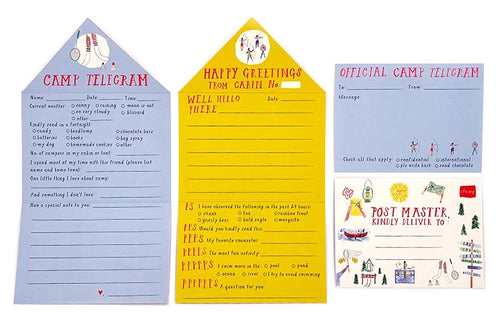 CAMP TELEGRAM
Name: Date: Time:
Current weather: sunny raining moon is out
so very cloudy blizzard
other
Kindly send in a fortnight:
candy headlamp chocolate bars
batteries books bug spray
my dog homemade cookies other
No. of campers in my cabin or tent:
I spend most of my time with this friend (please list
name and home town)
One little thing I love about camp:
And something I don't love:
Now a special note to you:
HAPPY GREETINGS
FROM CABIN No.
WELL HELLO Date:
THERE
PS. I have observed the following in the past 24 hours:
skunk fox rainbow trout
grizzly bear bald eagle mosquito
PPS Would you kindly send this:
PPPS. My favorite counselor
PPPPS. The most fun activity
PPPPPS. I swam more in the pool pond
ocean river I try to avoid swimming
PPPPPPS. A question for you:
OFFICIAL CAMP TELEGRAM
To: From:
Message:
Check all that apply: confidential international
private send chocolate
POST MASTER,
KINDLY DELIVER TO:
stamp